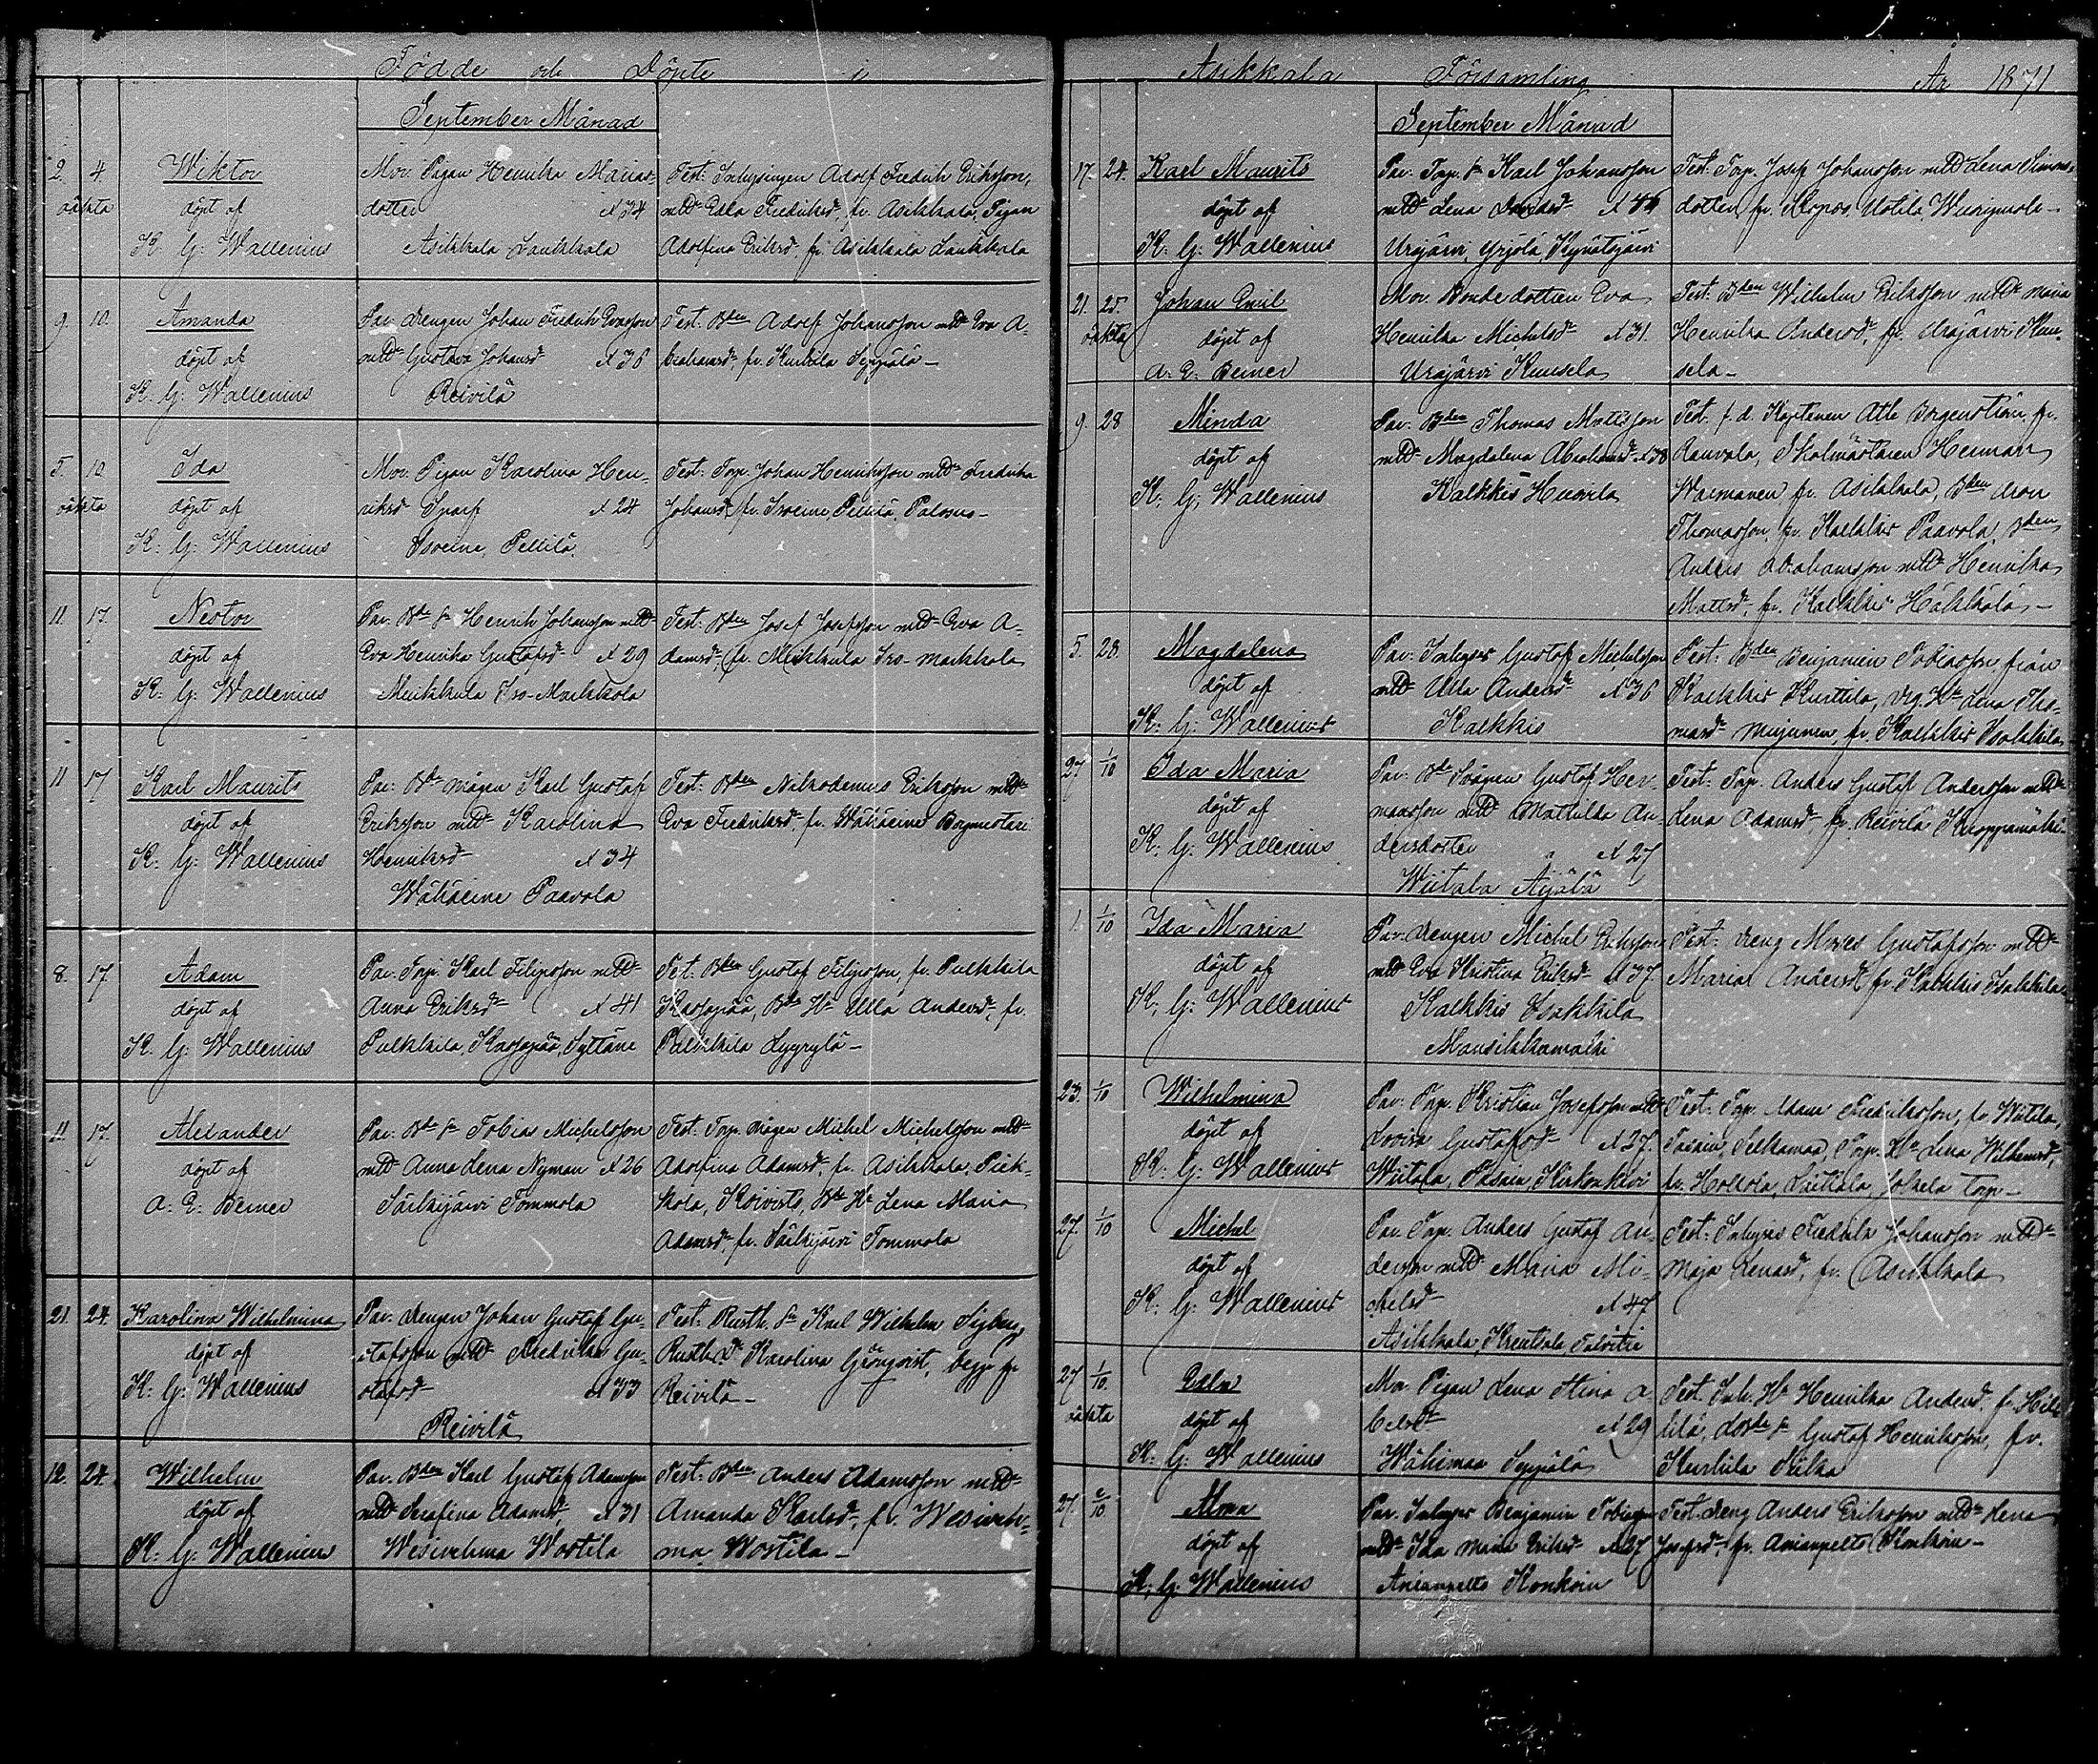 Födde och Döpte i
September Månad
2. 4. Wiktor
oäkta döpt af
K. G. Wallenius
Mor. Pigan Henrika Marias-
dotter N 34
Asikkala Laukkala
Test: Inhysingen Adolf Fredrik Eriksson,
mtd Edla Fredriksd, fr. Asikkala, Pigan
Adolfina Eriksd, fr. Asikkala Laukkala
9. 10. Amanda
döpt af
K. G. Wallenius
Par. drengen Johan Fredrik Evasson
mtd Gustava Johansd N 36
Reivilä
Test: Bden Adolf Johansson mtd Eva A-
brahamsd, fr. Kurhila Seppälä
5. 10. Ida
oäkta döpt af
K. G. Wallenius
Mor. Pigan Karolina Hen-
riksd N 24
Isoeine, Pellilä
Test: Torp. Johan Henriksson mtd Fredrika
Johansd, fr. Isoeine, Pellilä, Palomo
11. 17. Nestor
döpt af
K. G. Wallenius
Par. Bde Sn Henrik Johansson mtd
Eva Henrika Gustafsd N 29
Muikkula Iso-Markkola
Test: Bden Josef Josefsson mtd Eva A-
damsd, fr. Muikkula Iso-Markkola
11. 17. Karl Maurits
döpt af
K. G. Wallenius
Par. Bde mågen Karl Gustaf
Eriksson mtd Karolina
Henriksd N 34
Wähäeine Paavola
Test: Bden Nikodemus Eriksson mtd
Eva Fredriksd, fr. Wähäeine Borgmestari
8. 17. Adam
döpt af
K. G. Wallenius
Par. Torp. Karl Filipsson mtd
Anna Eriksd N 41
Pulkkila, Karjopää, Syttäne
Test: Bden Gustaf Filipsson, fr. Pulkkila
Karjopää, Bde Hu Ulla Andersd, fr.
Pulkkila Lyyrylä
11. 17. Alexander
döpt af
A. E. Berner
Par. Bde Sn Tobias Michelsson
mtd Anna Lena Nyman N 26
Särkijärvi Tommola
Test: Torp. mågen Michel Michelsson mtd
Adolfina Adamsd, fr. Asikkala,
Koivisto, Bde Hu Lena Maria
Adamsd, fr. Särkijärvi Tommola
21. 24. Karolina Wilhelmina
döpt af
K. G. Wallenius
Par. drengen Johan Gustaf Gu-
stafsson mtd Fredrika Gu-
stafsd N 33
Reivilä
Test: Rusth. Sn Karl Wilhelm
Rusth. Dr Karolina Grönqvist, begge fr
Reivilä
12. 24. Wilhelm
döpt af
K. G. Wallenius
Par. Bden Karl Gustaf Adamsson
mtd Serafina Adamsd, N 31
Wesivehma Wostila
Test: Bden Anders Adamsson mtd
Amanda Karlsd, fr. Wesiveh-
ma Wostila
Asikkala Församling År 1871
September Månad
17. 24. Karl Maurits
döpt af
K. G. Wallenius
Par. Torp. Sn Karl Johansson
mtd Lena Davidsd N 44
Urajärvi, Yrjölä,
Test: Torp. Josef Johansson mtd Lena Simons-
dotter, fr. Uotila
21. 25. Johan Emil
oäkta döpt af
A. E. Berner
Mor. Bonde dottren Eva
Henrika Michelsd N 31.
Urajärvi Kuusela
Test: Bden Wilhelm Eriksson mtd Maria
Henrika Andersd, fr. Urajärvi Kuu-
sela
9. 28 Minda
döpt af
K. G. Wallenius
Par. Bden Thomas Mattsson
mtd Magdalena Abrahamsd N 38
Kalkkis Heinilä
Test. f. d. Kaptenen Atle Borgenström, fr.
Rauvola, Skolmästaren Herman
Warmanen fr. Asikkala, Bden Aron
Thomasson, fr. Kalkkis Paavola, Bden
Anders Abrahamsson mtd Henrika
Mattsd, fr. Kalkkis Häkkälä
5. 28. Magdalena
döpt af
K. G. Wallenius
Par. Inhyses Gustaf Michelsson
mtd Ulla Andersd N 36
Kalkkis
Test: Bden Benjamin Tobiasson från
Kalkkis Kurttila, Hu Lena Tho-
masd fr. Kalkkis Isakkila
27. 1/10 Ida Maria
döpt af
K. G. Wallenius
Par. Bde Svågern Gustaf Her-
mansson mtd Mathilda An-
dersdotter N 27
Wiitala Äijälä
Test: Torp. Anders Gustaf Andersson mtd
Lena Adamsd, fr. Reivilä Knoppimäki
1. 1/10 Ida Maria
döpt af
K. G. Wallenius
Par. drengen Michel Eriksson
mtd Eva Kristina Eriksd N 37.
Kalkkis Isakkila
Mansikkamäki
Test: dreng Moses Gustafsson mtd
Maria Andersd fr. Kalkkis Isakkila
23. 1/10 Wilhelmina
döpt af
K. G. Wallenius
Par. Torp. Kristian Josefsson mtd
Lovisa Gustafsd N 27.
Wiitala, Kirkonkivi
Test: Torp. Adam Fredriksson, fr. Wiitala,
Selkamaa, Torp. Hu Lena Wilhemsd,
fr. Hollola, torp
27. 1/10 Michel
döpt af
K. G. Wallenius
Par. Torp. Anders Gustaf An-
dersson mtd Maria Mi-
chelsd N 47
Asikkala, Kreutsala, Talvitie
Test: Inhyses Fredrik Johansson mtd
Maja Lenasd, fr. Asikkala
27 1/10. Edla
oäkta döpt af
K. G. Wallenius
Mor. Pigan Lena Stina A
belsd N 29
Wähimaa Seppälä
Test. Inh. Hu Henrika Andersd. fr. Hil-
lilä, Gustaf Henriksson, fr.
Kurhila
27. 2/10. Alma
döpt af
K. G. Wallenius
Par. Inhyses Benjamin Tobiasson
mtd Ida Maria Eriksd N 27
Anianpelto Konkoin
Test: dreng Anders Eriksson mtd Lena
Josefsd, fr. Anianpelto Konkoin